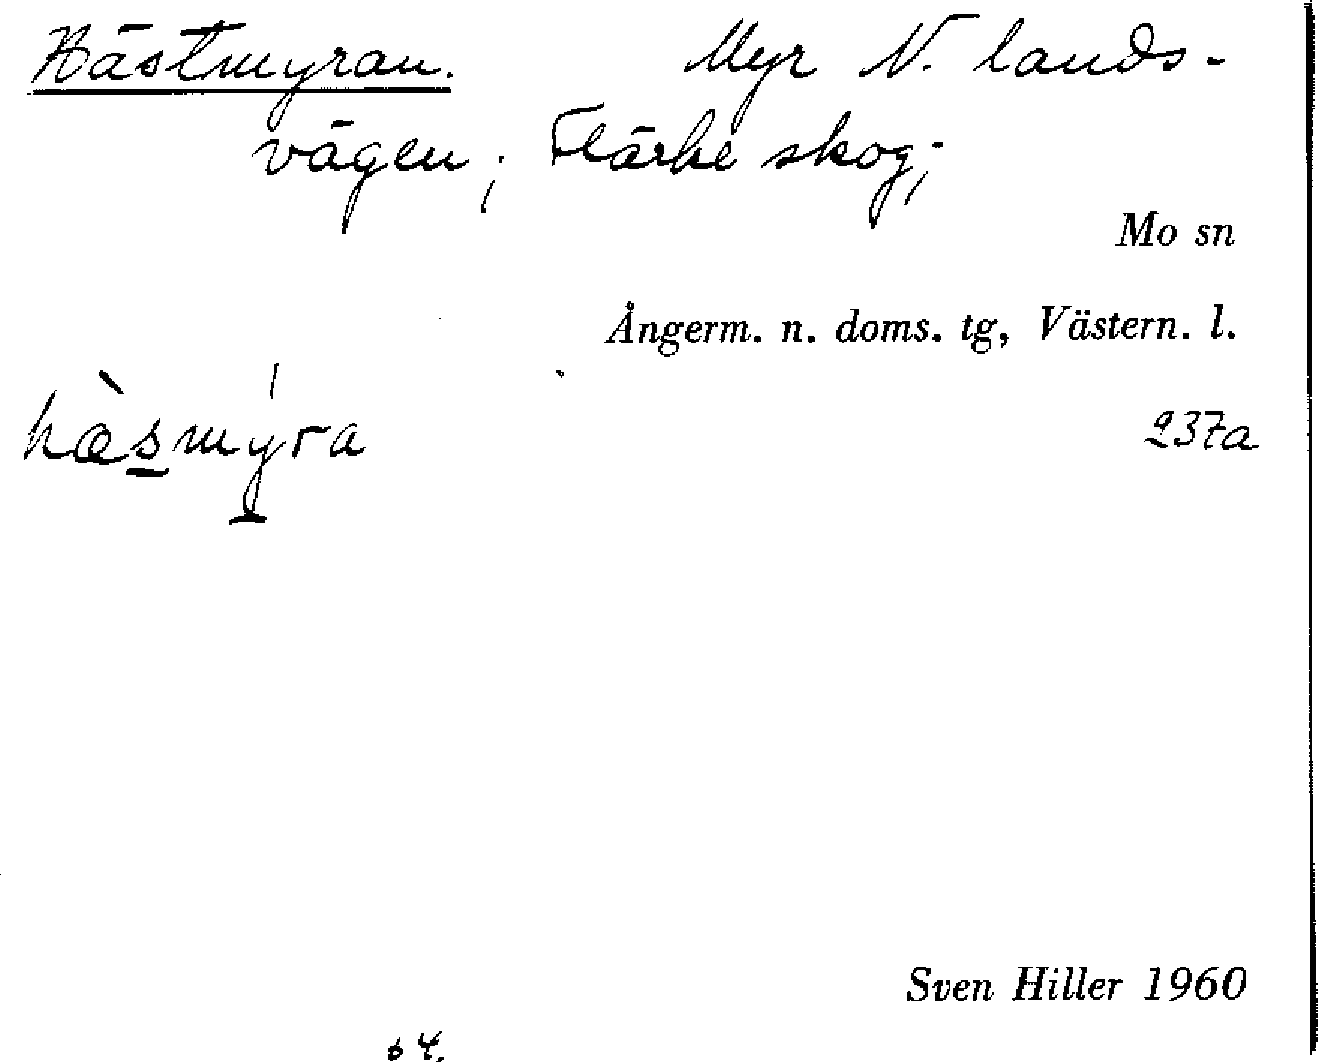 Hästmyran. Myr N. lands-
vägen; Flärke skog;
Mo sn
Ångerm. n. doms. tg, Västern. l.
hæ̀smýra 237a
Sven Hiller 1960